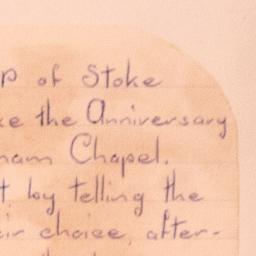 P of Stoke
ke the Anniversary
ham Chapel.
t, by telling the
eir choice, after-